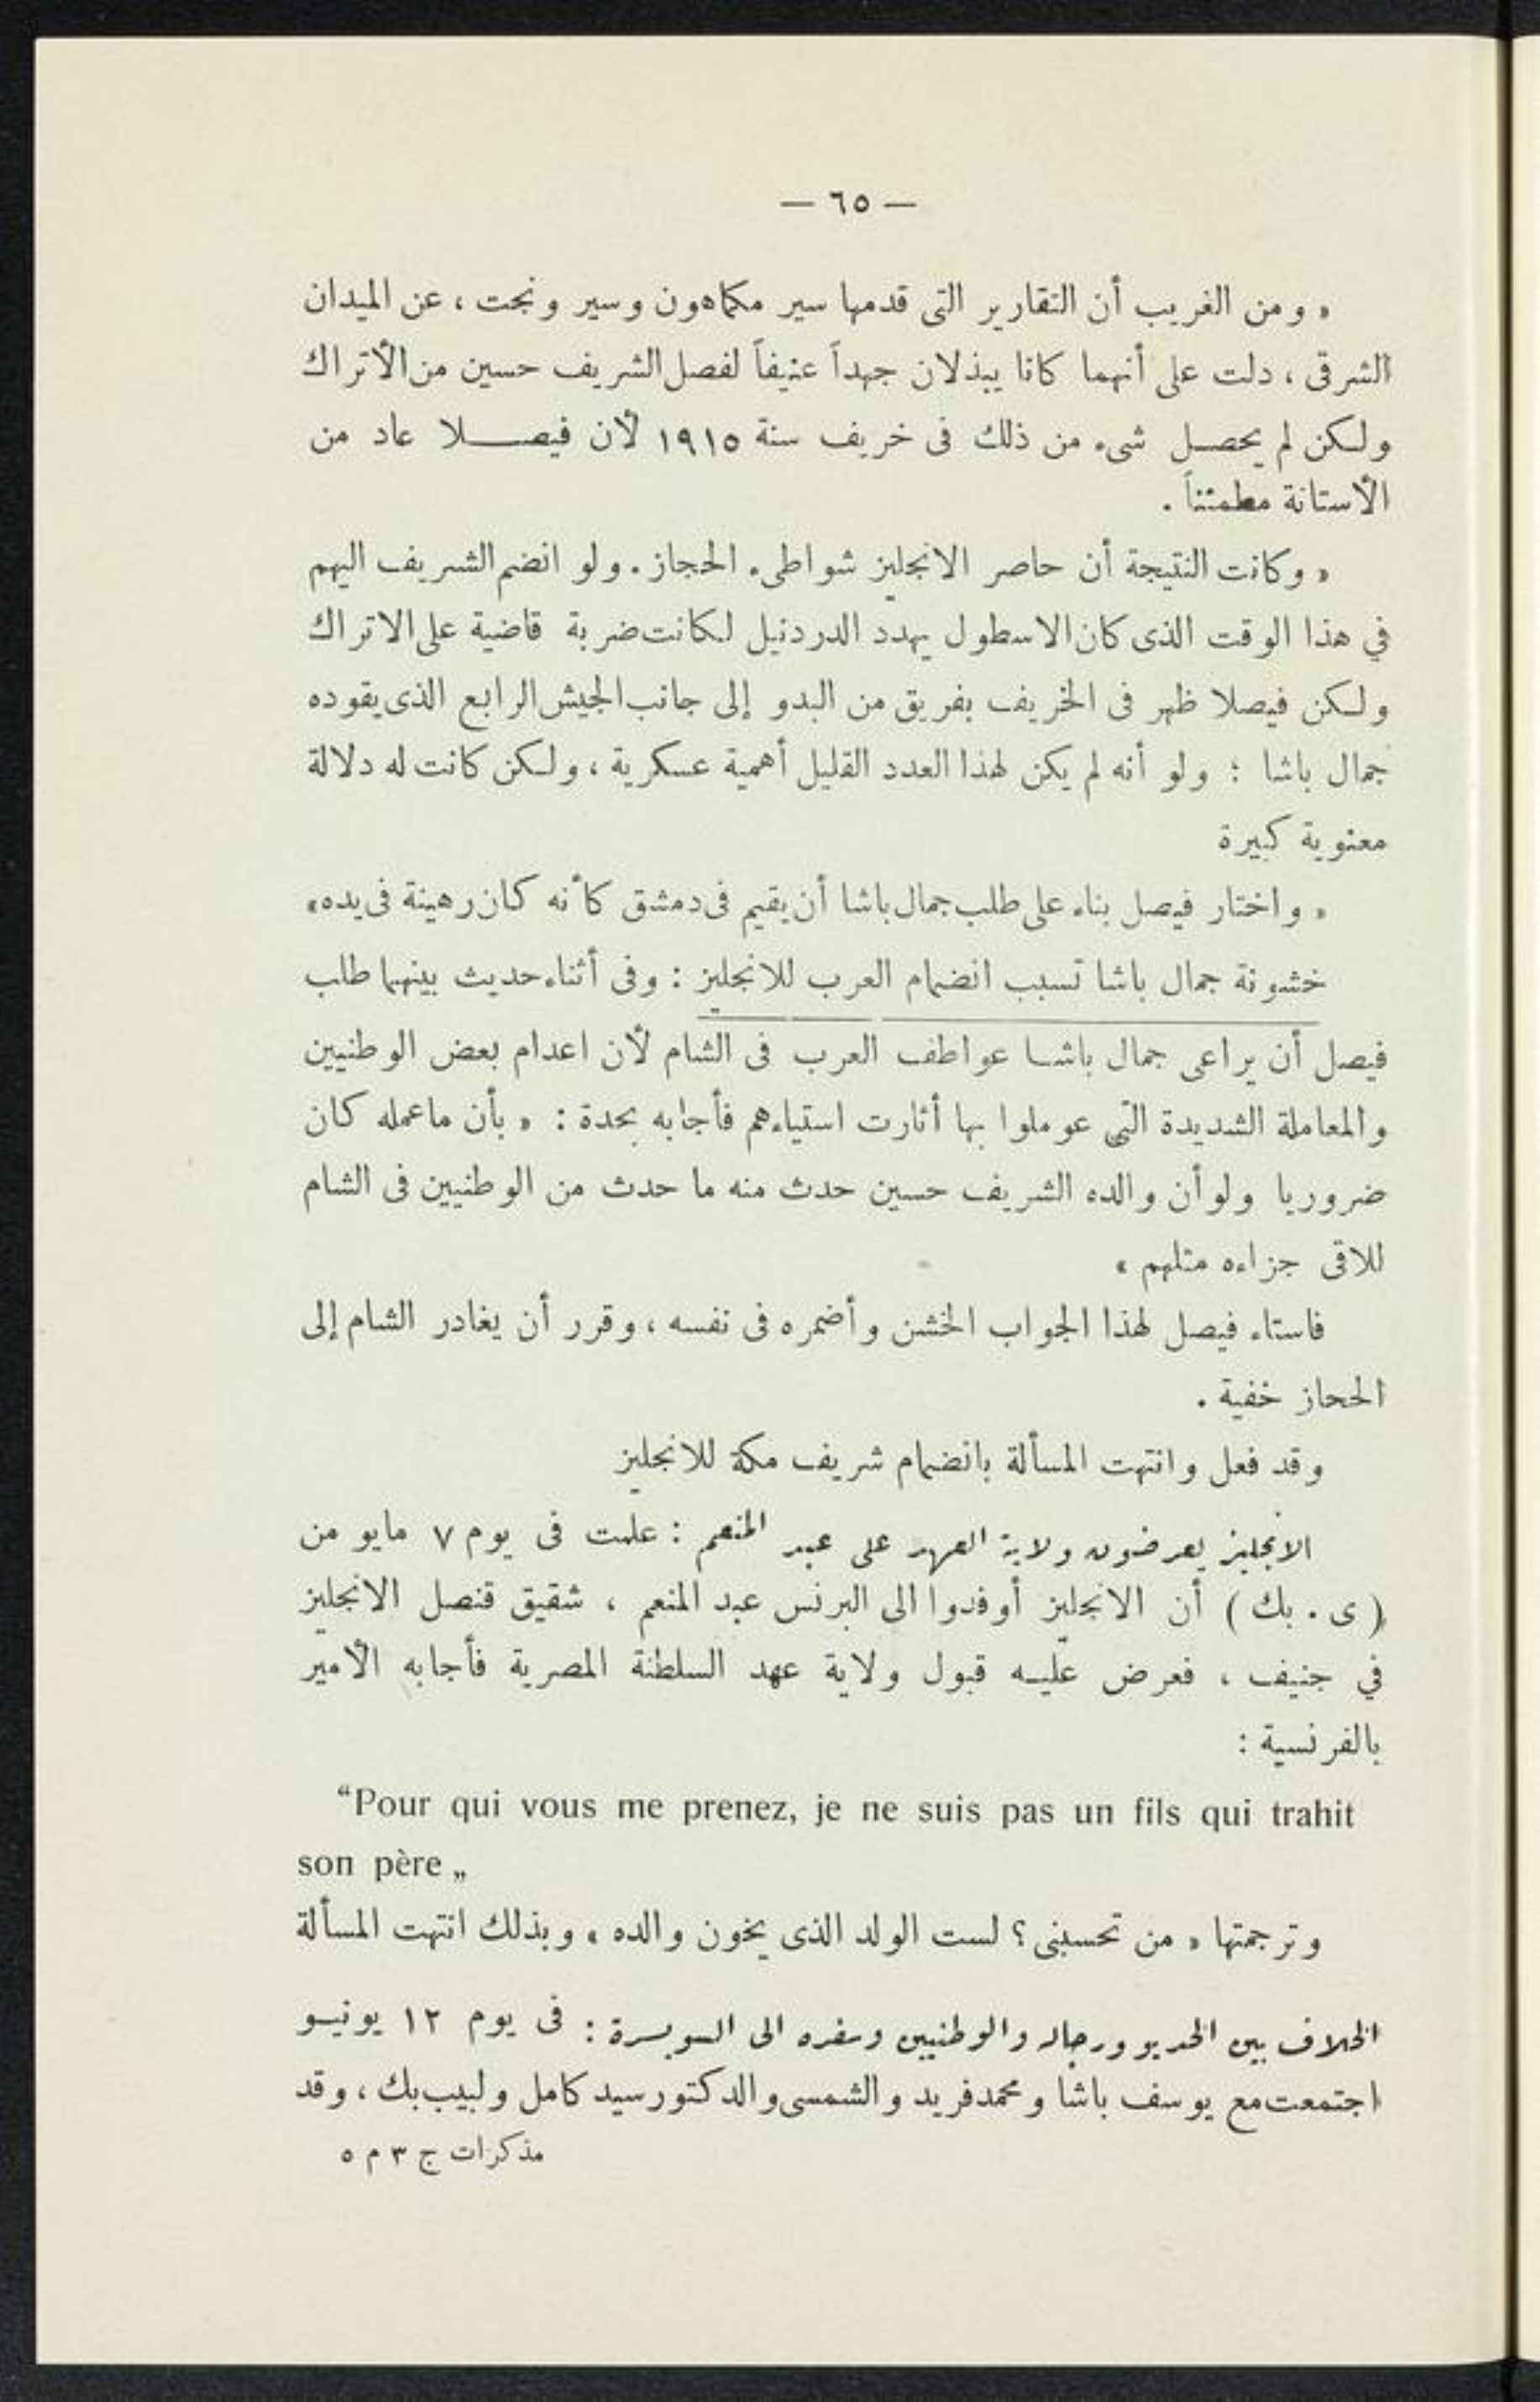 — ٦٥ —
« ومن الغريب أن التقارير التى قدمها سير مكماهون وسير ونجت ، عن الميدان
الشرقى ، دلت على أنهما كانا يبذلان جهداً عنيفاً لفصل الشريف حسين من الأتراك
ولكن لم يحصل شىء من ذلك فى خريف سنة ١٩١٥ لأن فيصلا عاد من
الأستانة مطمئناً .
« وكانت النتيجة أن حاصر الانجليز شواطىء الحجاز . ولو انضم الشريف اليهم
في هذا الوقت الذى كان الاسطول يهدد الدردنيل لكانت ضربة قاضية على الاتراك
ولكن فيصلا ظهر فى الخريف بفريق من البدو إلى جانب الجيش الرابع الذى يقوده
جمال باشا ؛ ولو أنه لم يكن لهذا العدد القليل أهمية عسكرية ، ولكن كانت له دلالة
معنوية كبيرة
« واختار فيصل بناء على طلب جمال باشا أن يقيم فى دمشق كأنه كان رهينة فى يده »
خشونة جمال باشا تسبب انضمام العرب للانجليز : وفى أثناء حديث بينهما طلب
فيصل أن يراعى جمال باشا عواطف العرب فى الشام لأن اعدام بعض الوطنيين
والمعاملة الشديدة التى عوملوا بها أثارت استياءهم فأجابه بحدة : « بأن ماعمله كان
ضروريا ولو أن والده الشريف حسين حدث منه ما حدث من الوطنيين فى الشام
للاقى جزاءه مثلهم »
فاستاء فيصل لهذا الجواب الخشن وأضمره فى نفسه ، وقرر أن يغادر الشام إلى
الحجاز خفية .
وقد فعل وانتهت المسألة بانضمام شريف مكة للانجليز
الانجليز يعرضون ولاية العهد على عبد المنعم : علمت فى يوم ٧ مايو من
( ى . بك ) أن الانجليز أوفدوا الى البرنس عبد المنعم ، شقيق قنصل الانجليز
في جنيف ، فعرض عليه قبول ولاية عهد السلطنة المصرية فأجابه الأمير
بالفرنسية :
“Pour qui vous me prenez, je ne suis pas un fils qui trahit
son père „
وترجمتها « من تحسبنى ؟ لست الولد الذى يخون والده » وبذلك انتهت المسألة
الخلاف بين الخديو ورجاله والوطنيين وسفره الى السويسرة : فى يوم ١٢ يونيو
اجتمعت مع يوسف باشا ومحمد فريد والشمسى والدكتور سيد كامل ولبيب بك ، وقد
مذكرات ج ٣ م ٥